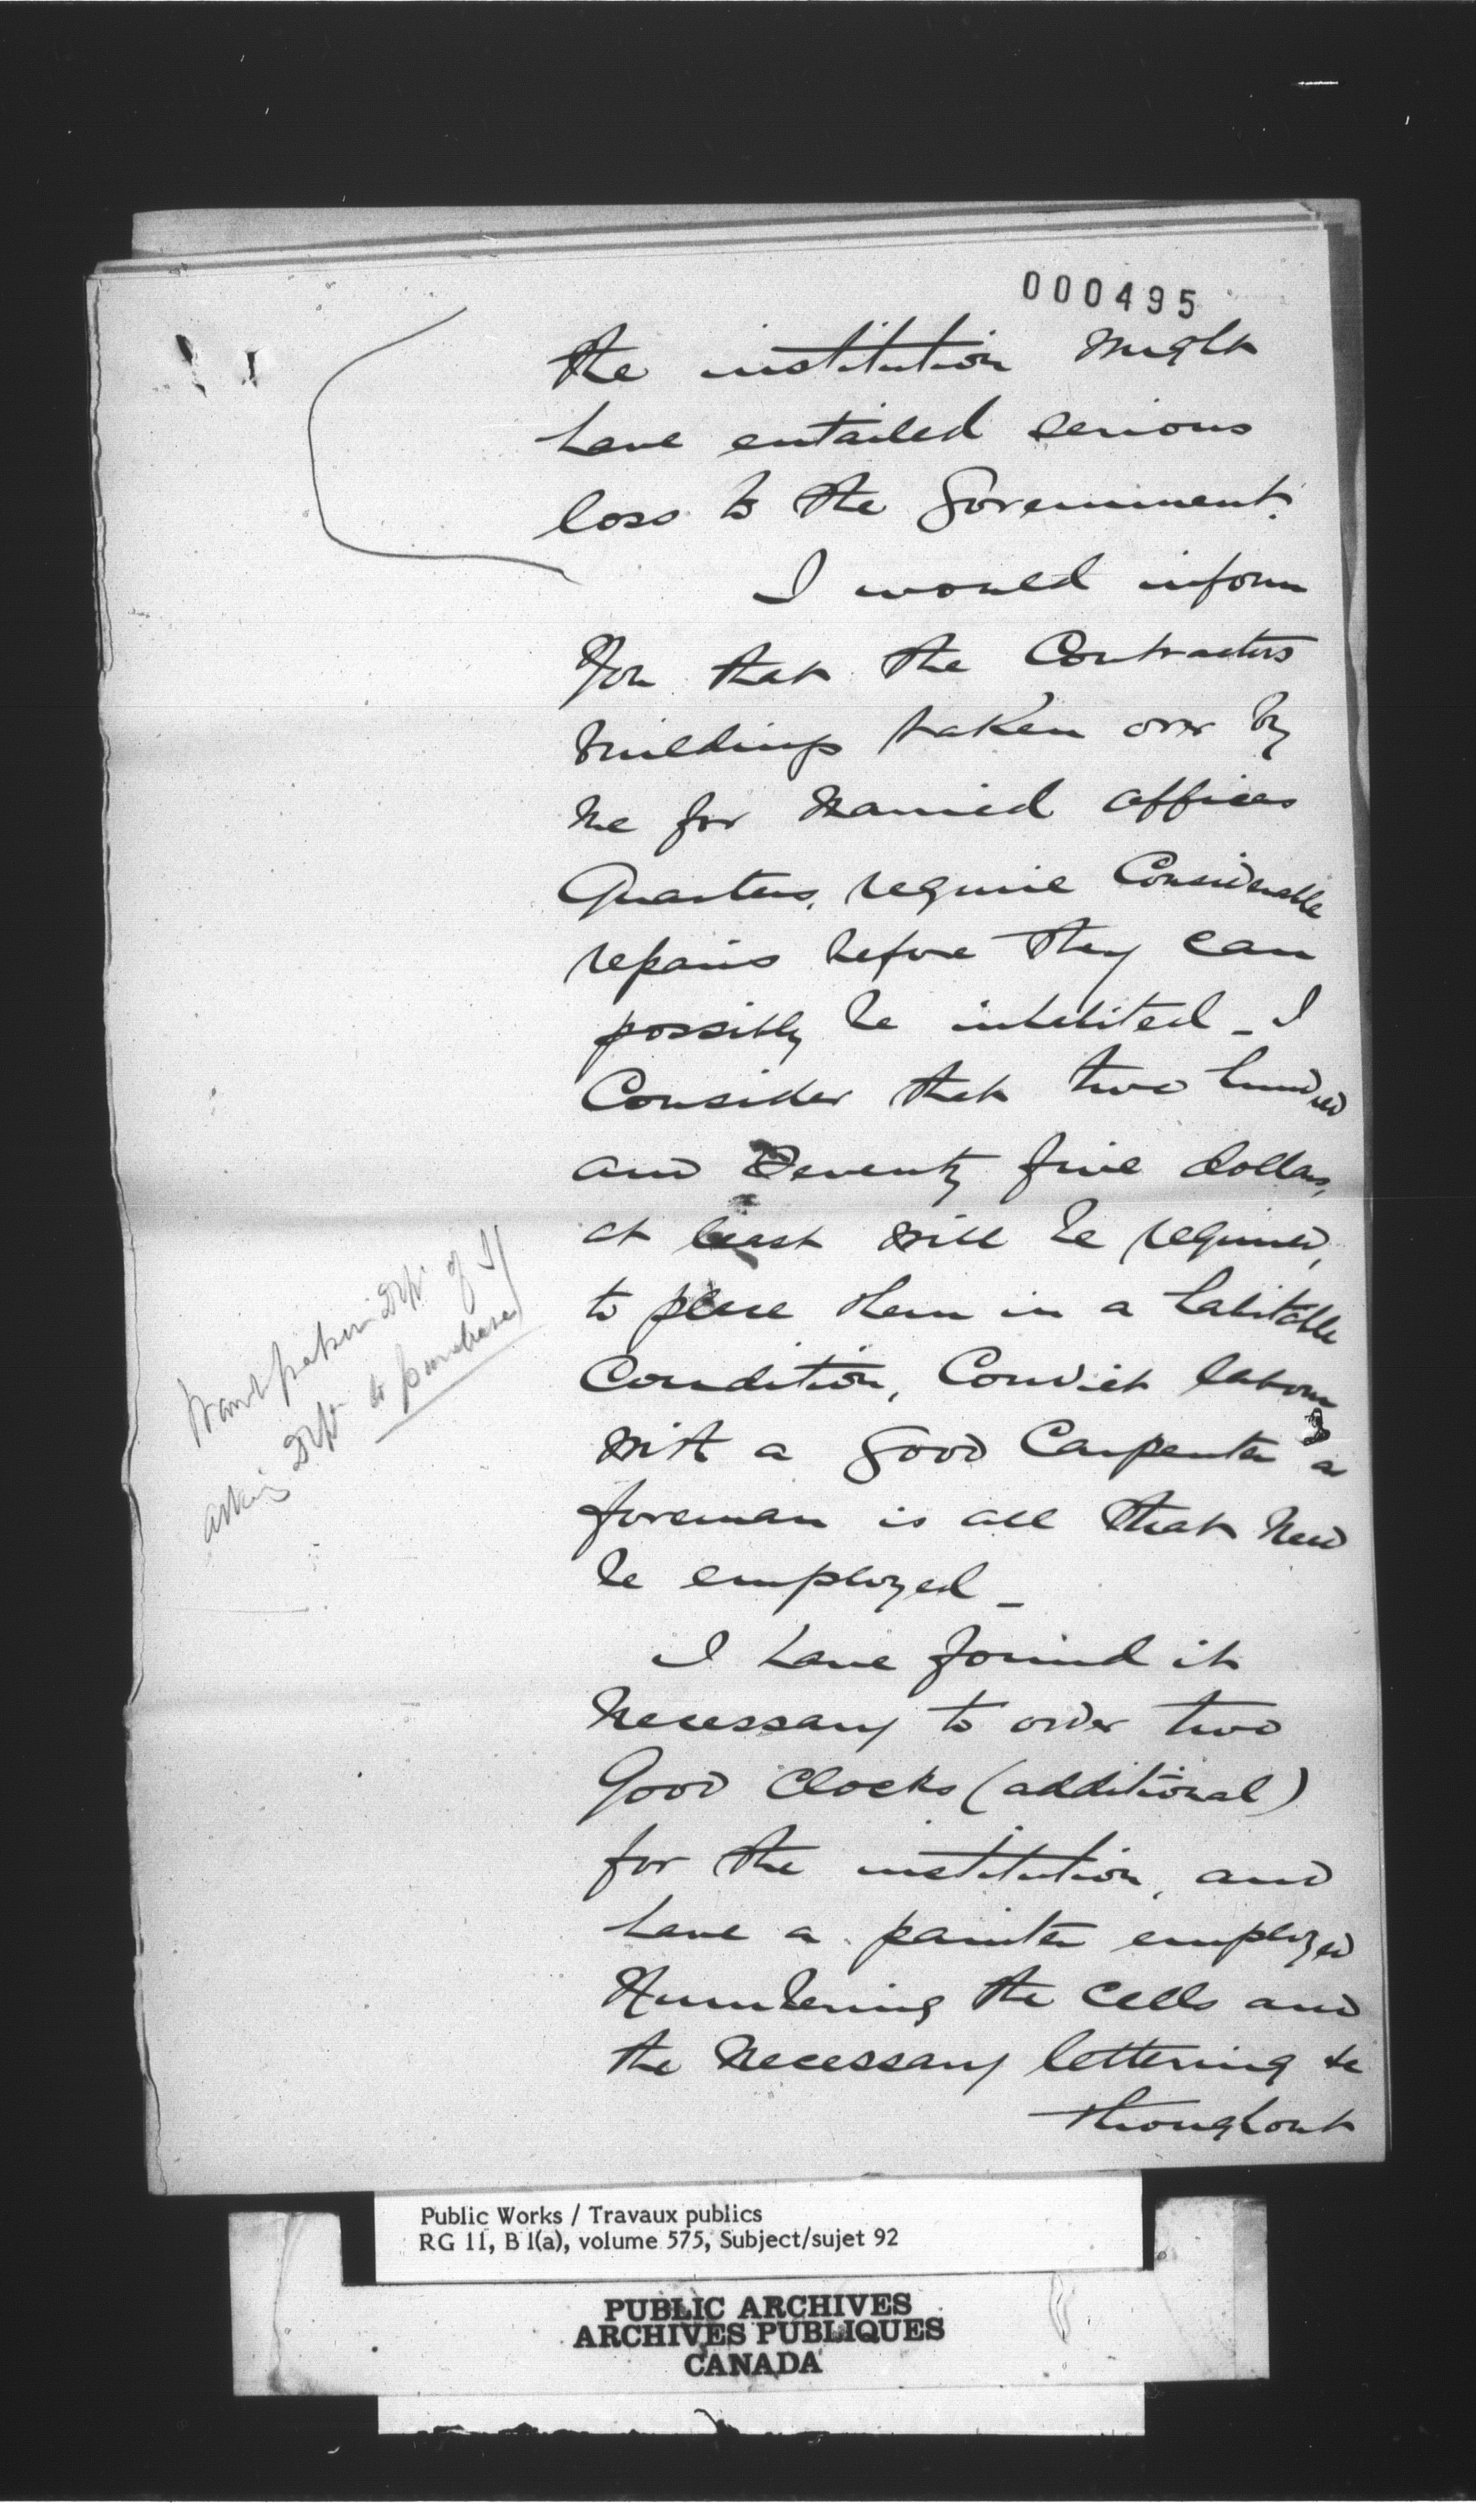 000495
the institution might
have entailed serious
loss to the Government.
I would inform
You that the Contractors
buildings taken over by
me for Married officers
Quarters, require Considerable
repairs before they can
possibly be inhabited - I
Consider that two hundred
and Seventy five dollars,
at least will be required,
to place them in a habitable
Condition, Convict labour
with a good Carpenter as
foreman is all that need
be employed -
I have found it
Necessary to order two
Good Clocks (additional)
for the institution, and
have a painter employed
Numbering the Cells and
the Necessary lettering &c
throughout
of
asking Dept to purchase
Public Works / Travaux publics
RG 11, B 1(a), volume 575, Subject/sujet 92
PUBLIC ARCHIVES
ARCHIVES PUBLIQUES
CANADA